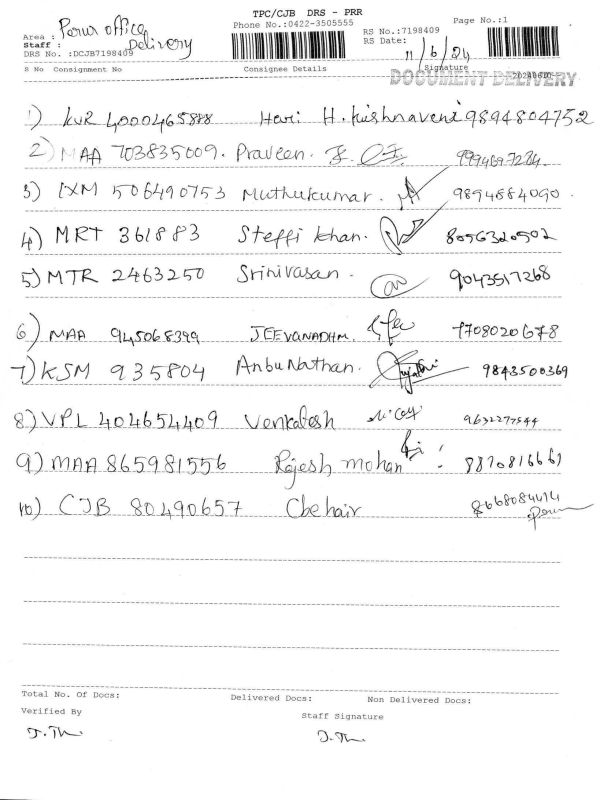 TPC/CJB DRS - PRR
Phone No.:0422-3505555
Page No.:1
Area : Perur office
Staff : Delivery
DRS No. :DCJB7198409
RS No.:7198409
RS Date: 11/6/24
S No Consignment No Consignee Details Signature
DOCUMENT DELIVERY
1) KVR 4000465888 Hari H. Krishnaveni 9894804752
2) MAA 703835009. Praveen.
3) IXM 506490753 Muthukumar. 9894884090.
4) MRT 361883 Steffi khan. 8056320502
5) MTR 2463250 Srinivasan. 9043517268
6) MAA 945068399 JEEVANADHM. 7708020678
7) KSM 935804 AnbuNathan. 9843500369
8) VPL 404654409 Venkatesh 9632277544
9) MAA 865981556 Rajesh mohan 8870816661
10) CJB 80490657 Cbehair
Total No. Of Docs: Delivered Docs: Non Delivered Docs:
Verified By
Staff Signature
J.Th. J.Th.